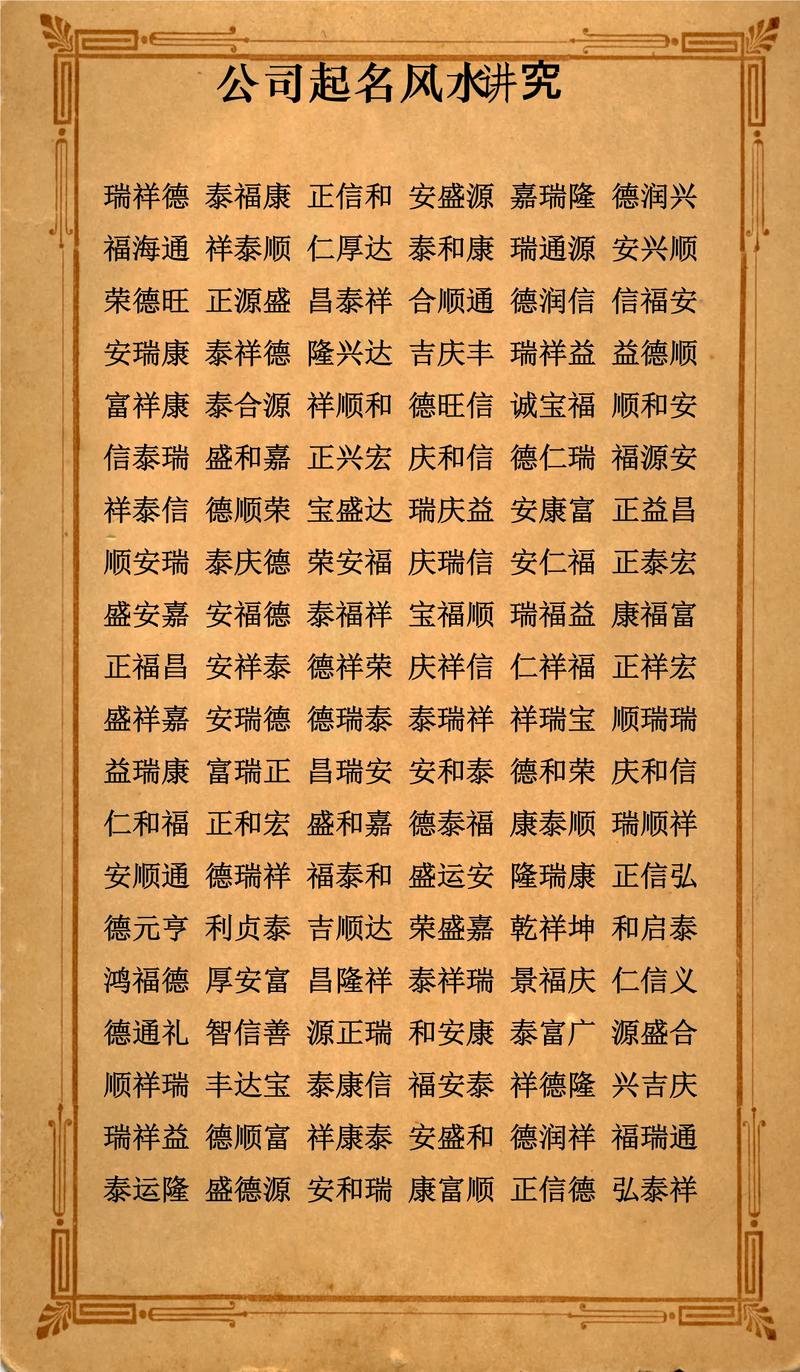 公司起名风水讲究
瑞祥德 泰福康 正信和 安盛源 嘉瑞隆 德润兴
福海通 祥泰顺 仁厚达 泰和康 瑞通源 安兴顺
荣德旺 正源盛 昌泰祥 合顺通 德润信 信福安
安瑞康 泰祥德 隆兴达 吉庆丰 瑞祥益 益德顺
富祥康 泰合源 祥顺和 德旺信 诚宝福 顺和安
信泰瑞 盛和嘉 正兴宏 庆和信 德仁瑞 福源安
祥泰信 德顺荣 宝盛达 瑞庆益 安康富 正益昌
顺安瑞 泰庆德 荣安福 庆瑞信 安仁福 正泰宏
盛安嘉 安福德 泰福祥 宝福顺 瑞福益 康福富
正福昌 安祥泰 德祥荣 庆祥信 仁祥福 正祥宏
盛祥嘉 安瑞德 德瑞泰 泰瑞祥 祥瑞宝 顺瑞瑞
益瑞康 富瑞正 昌瑞安 安和泰 德和荣 庆和信
仁和福 正和宏 盛和嘉 德泰福 康泰顺 瑞顺祥
安顺通 德瑞祥 福泰和 盛运安 隆瑞康 正信弘
德元亨 利贞泰 吉顺达 荣盛嘉 乾祥坤 和启泰
鸿福德 厚安富 昌隆祥 泰祥瑞 景福庆 仁信义
德通礼 智信善 源正瑞 和安康 泰富广 源盛合
顺祥瑞 丰达宝 泰康信 福安泰 祥德隆 兴吉庆
瑞祥益 德顺富 祥康泰 安盛和 德润祥 福瑞通
泰运隆 盛德源 安和瑞 康富顺 正信德 弘泰祥